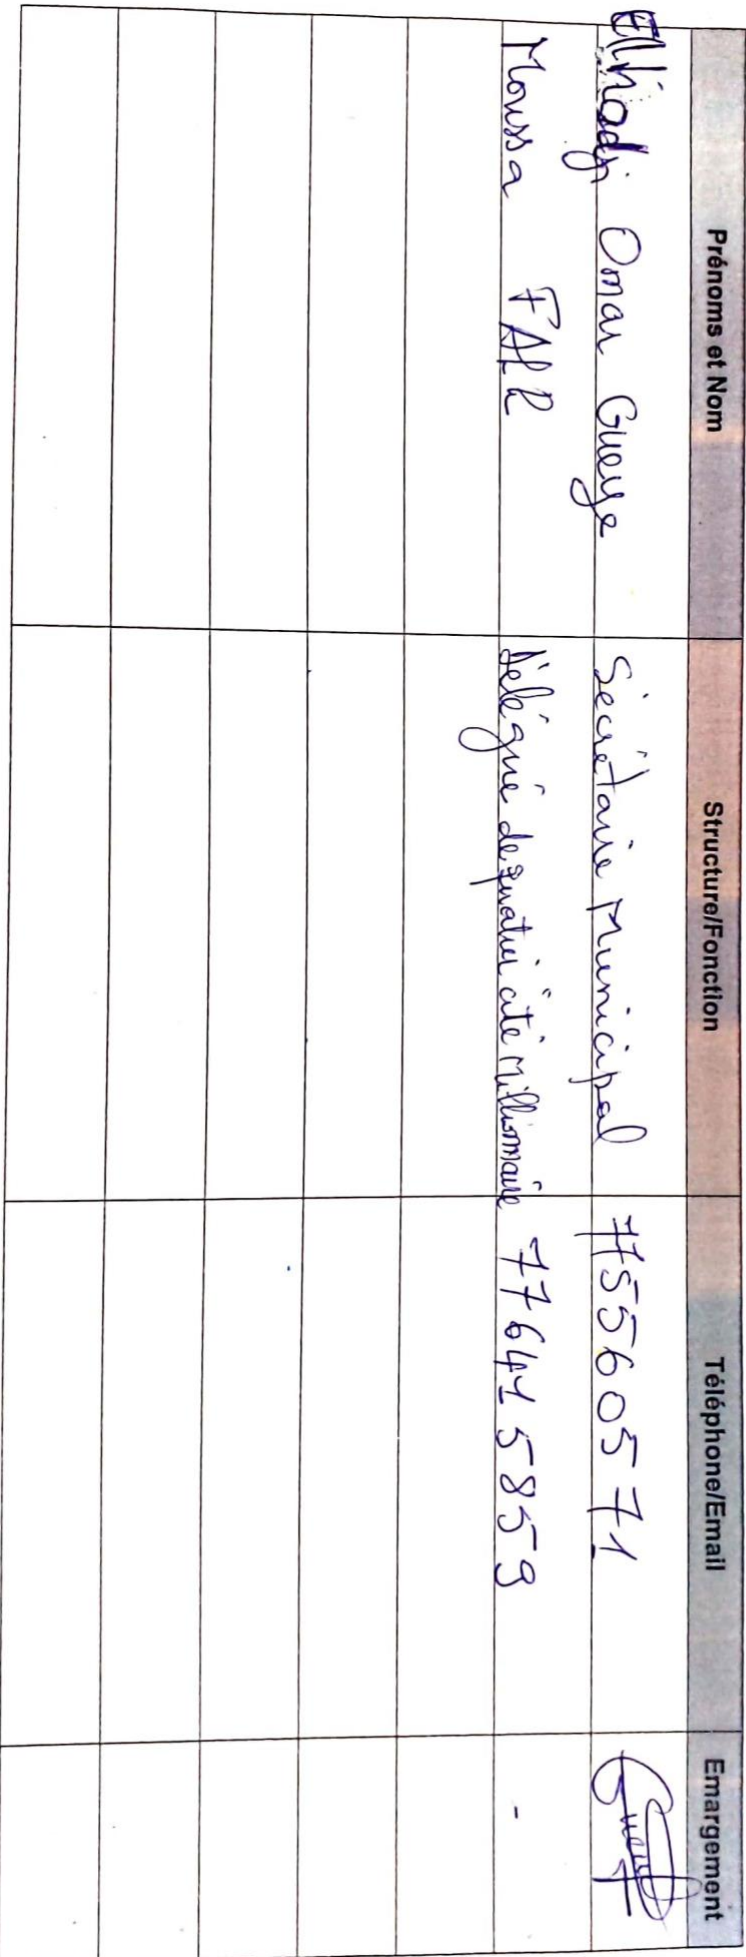 Prénoms et Nom Structure/Fonction Téléphone/Email Emargement
Elhadji Omar Gueye Secrétaire Municipal 775560571
Moussa FALL Délégué de quartier cité Millionnaire 776415859 -